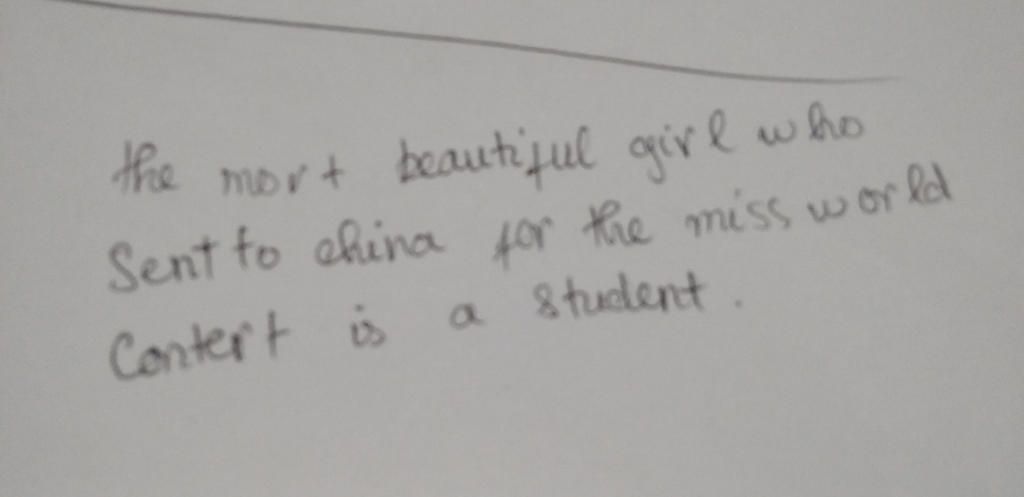 the most beautiful girl who
Sent to china for the miss world
Contest is a student.